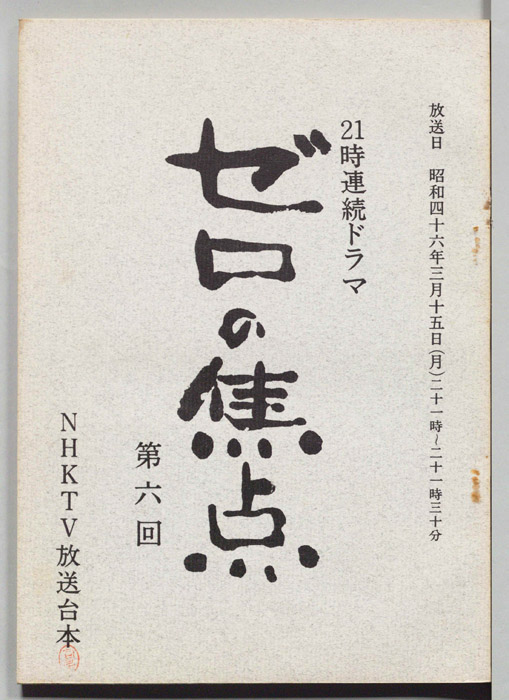 放送日　昭和四十六年三月十五日(月)二十一時～二十一時三十分
21時連続ドラマ
ゼロの焦点
第六回
NHKTV放送台本